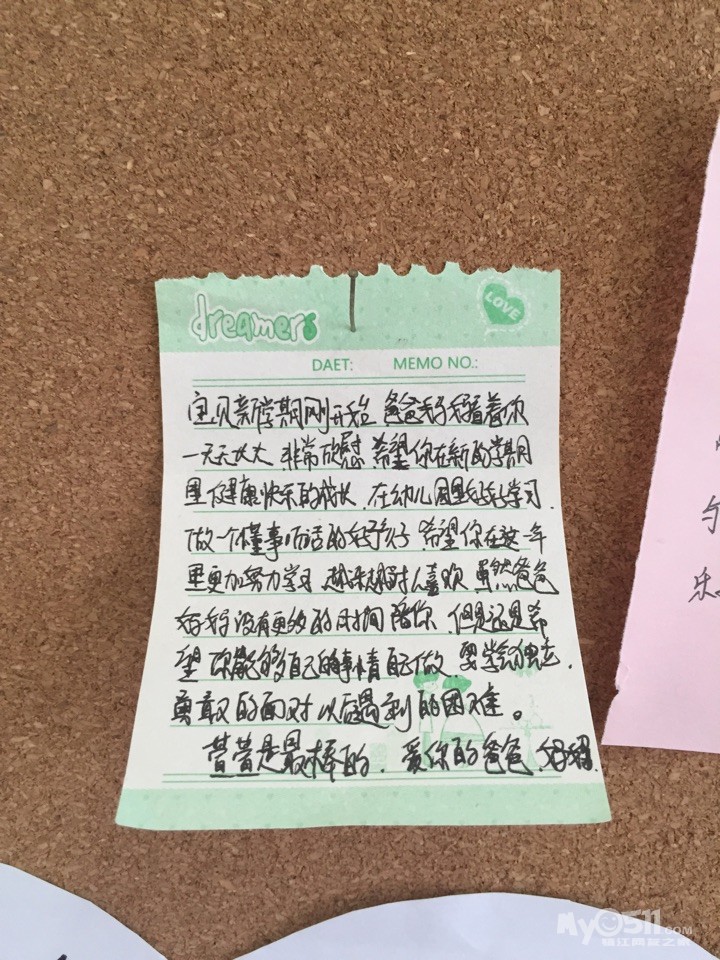 dreamers
LOVE
DAET: MEMO NO.:
宝贝新学期刚开始 爸爸妈妈看着你
一天天长大 非常欣慰 希望你在新的学期
里健康快乐的成长.在幼儿园里好好学习.
做一个懂事听话的好孩子 希望你在这一年
里更加努力学习 越来越讨人喜欢 虽然爸爸
妈妈没有更多的时间陪你 但是还是希
望你能够自己的事情自己做.要学会独立.
勇敢的面对以后遇到的困难。
萱萱是最棒的.爱你的爸爸.妈妈.
乐
My0511.COM
镇江网友之家